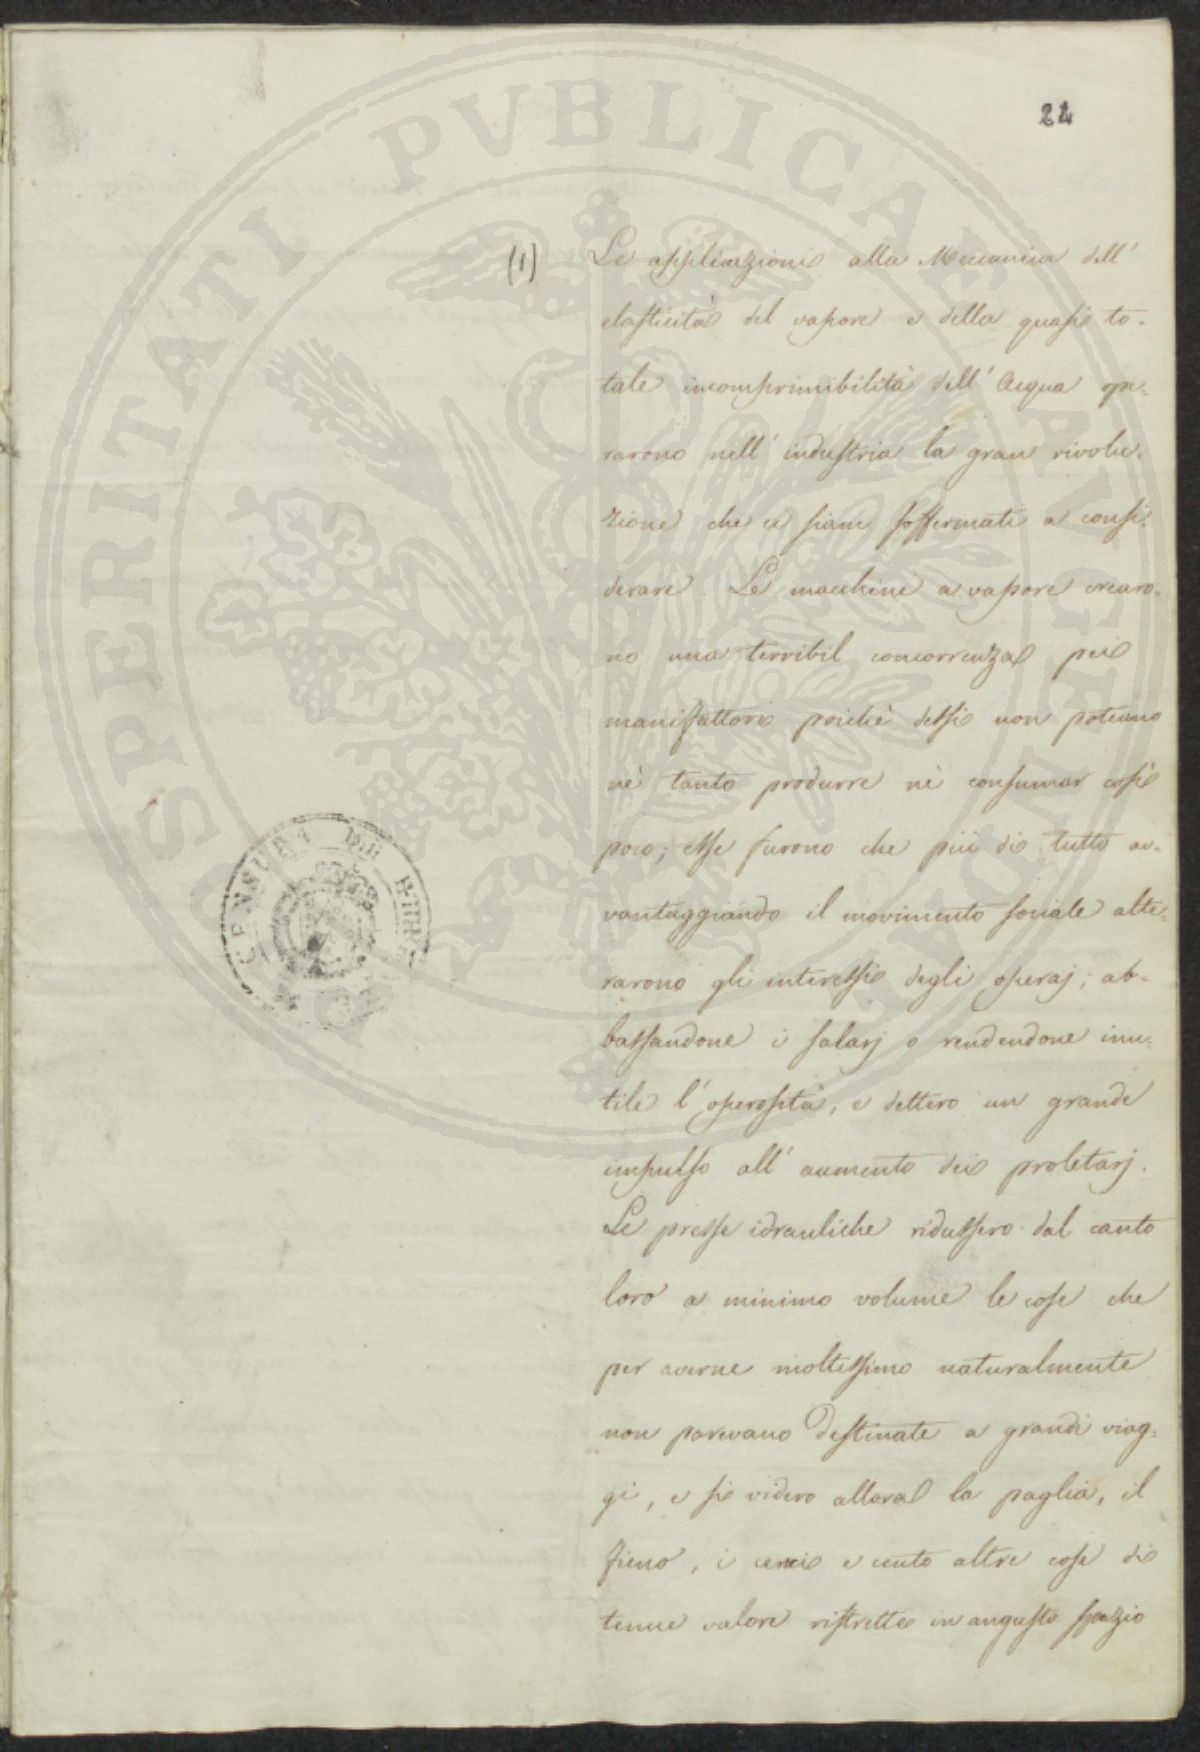 24
(1) Le applicazioni alla Meccanica dell'
elasticità del vapore e della quasi to-
tale incomprimibilità dell' Acqua ope-
rarono nell' industria la gran rivolu-
zione che ci siam soffermati a consi-
derare. Le macchine a vapore crearo-
no una terribil concorrenza pei
manifattori poichè dessi non poteano
nè tanto produrre nè consumar così
poco; esse furono che più di tutto av-
vantaggiando il movimento sociale alte-
rarono gli interessi degli operaj; ab-
bassandone i salarj o rendendone inu-
tile l' operosità, e dettero un grande
impulso all' aumento dei proletarj.
Le presse idrauliche ridussero dal canto
loro a minimo volume le cose che
per averne moltissimo naturalmente
non parevano destinate a grandi viag-
gi, e si videro allora la paglia, il
fieno, i cenci e cento altre cose di
tenue valore ristrette in angusto spazio
CENSURA
PROSPERITATI PVBLICAE AVGENDAE